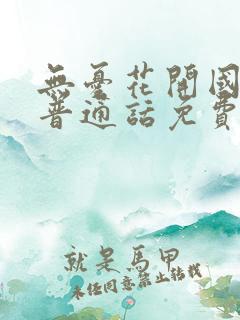 無憂花開國
普通話免費
就是馬甲
未経同意禁止轉載